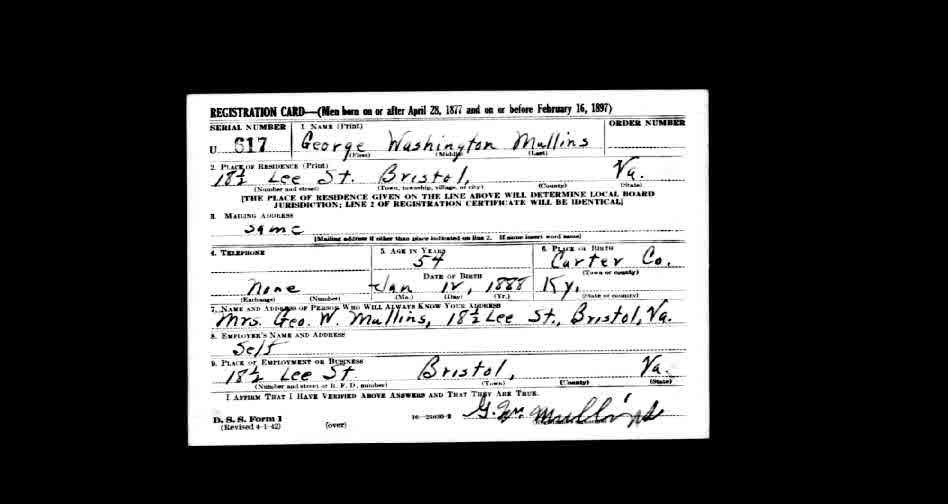 REGISTRATION CARD—(Men born on or after April 28, 1877 and on or before February 16, 1897)
SERIAL NUMBER 1. NAME (Print) ORDER NUMBER
U 617 George Washington Mullins
(First) (Middle) (Last)
2. PLACE OF RESIDENCE (Print)
18½ Lee St. Bristol, Va.
(Number and street) (Town, township, village, or city) (County) (State)
[THE PLACE OF RESIDENCE GIVEN ON THE LINE ABOVE WILL DETERMINE LOCAL BOARD
JURISDICTION; LINE 2 OF REGISTRATION CERTIFICATE WILL BE IDENTICAL]
3. MAILING ADDRESS
same
[Mailing address if other than place indicated on line 2. If same insert word same]
4. TELEPHONE 5. AGE IN YEARS 6. PLACE OF BIRTH
54 Carter Co.
(Town or county)
DATE OF BIRTH
None Jan 12, 1888 Ky.
(Exchange) (Number) (Mo.) (Day) (Yr.) (State or country)
7. NAME AND ADDRESS OF PERSON WHO WILL ALWAYS KNOW YOUR ADDRESS
Mrs. Geo. W. Mullins, 18½ Lee St., Bristol, Va.
8. EMPLOYER'S NAME AND ADDRESS
Self
9. PLACE OF EMPLOYMENT OR BUSINESS
18½ Lee St Bristol, Va.
(Number and street or R. F. D. number) (Town) (County) (State)
I AFFIRM THAT I HAVE VERIFIED ABOVE ANSWERS AND THAT THEY ARE TRUE.
D. S. S. Form 1
(Revised 4-1-42) (over) 16—21630-2 G. W. Mullins